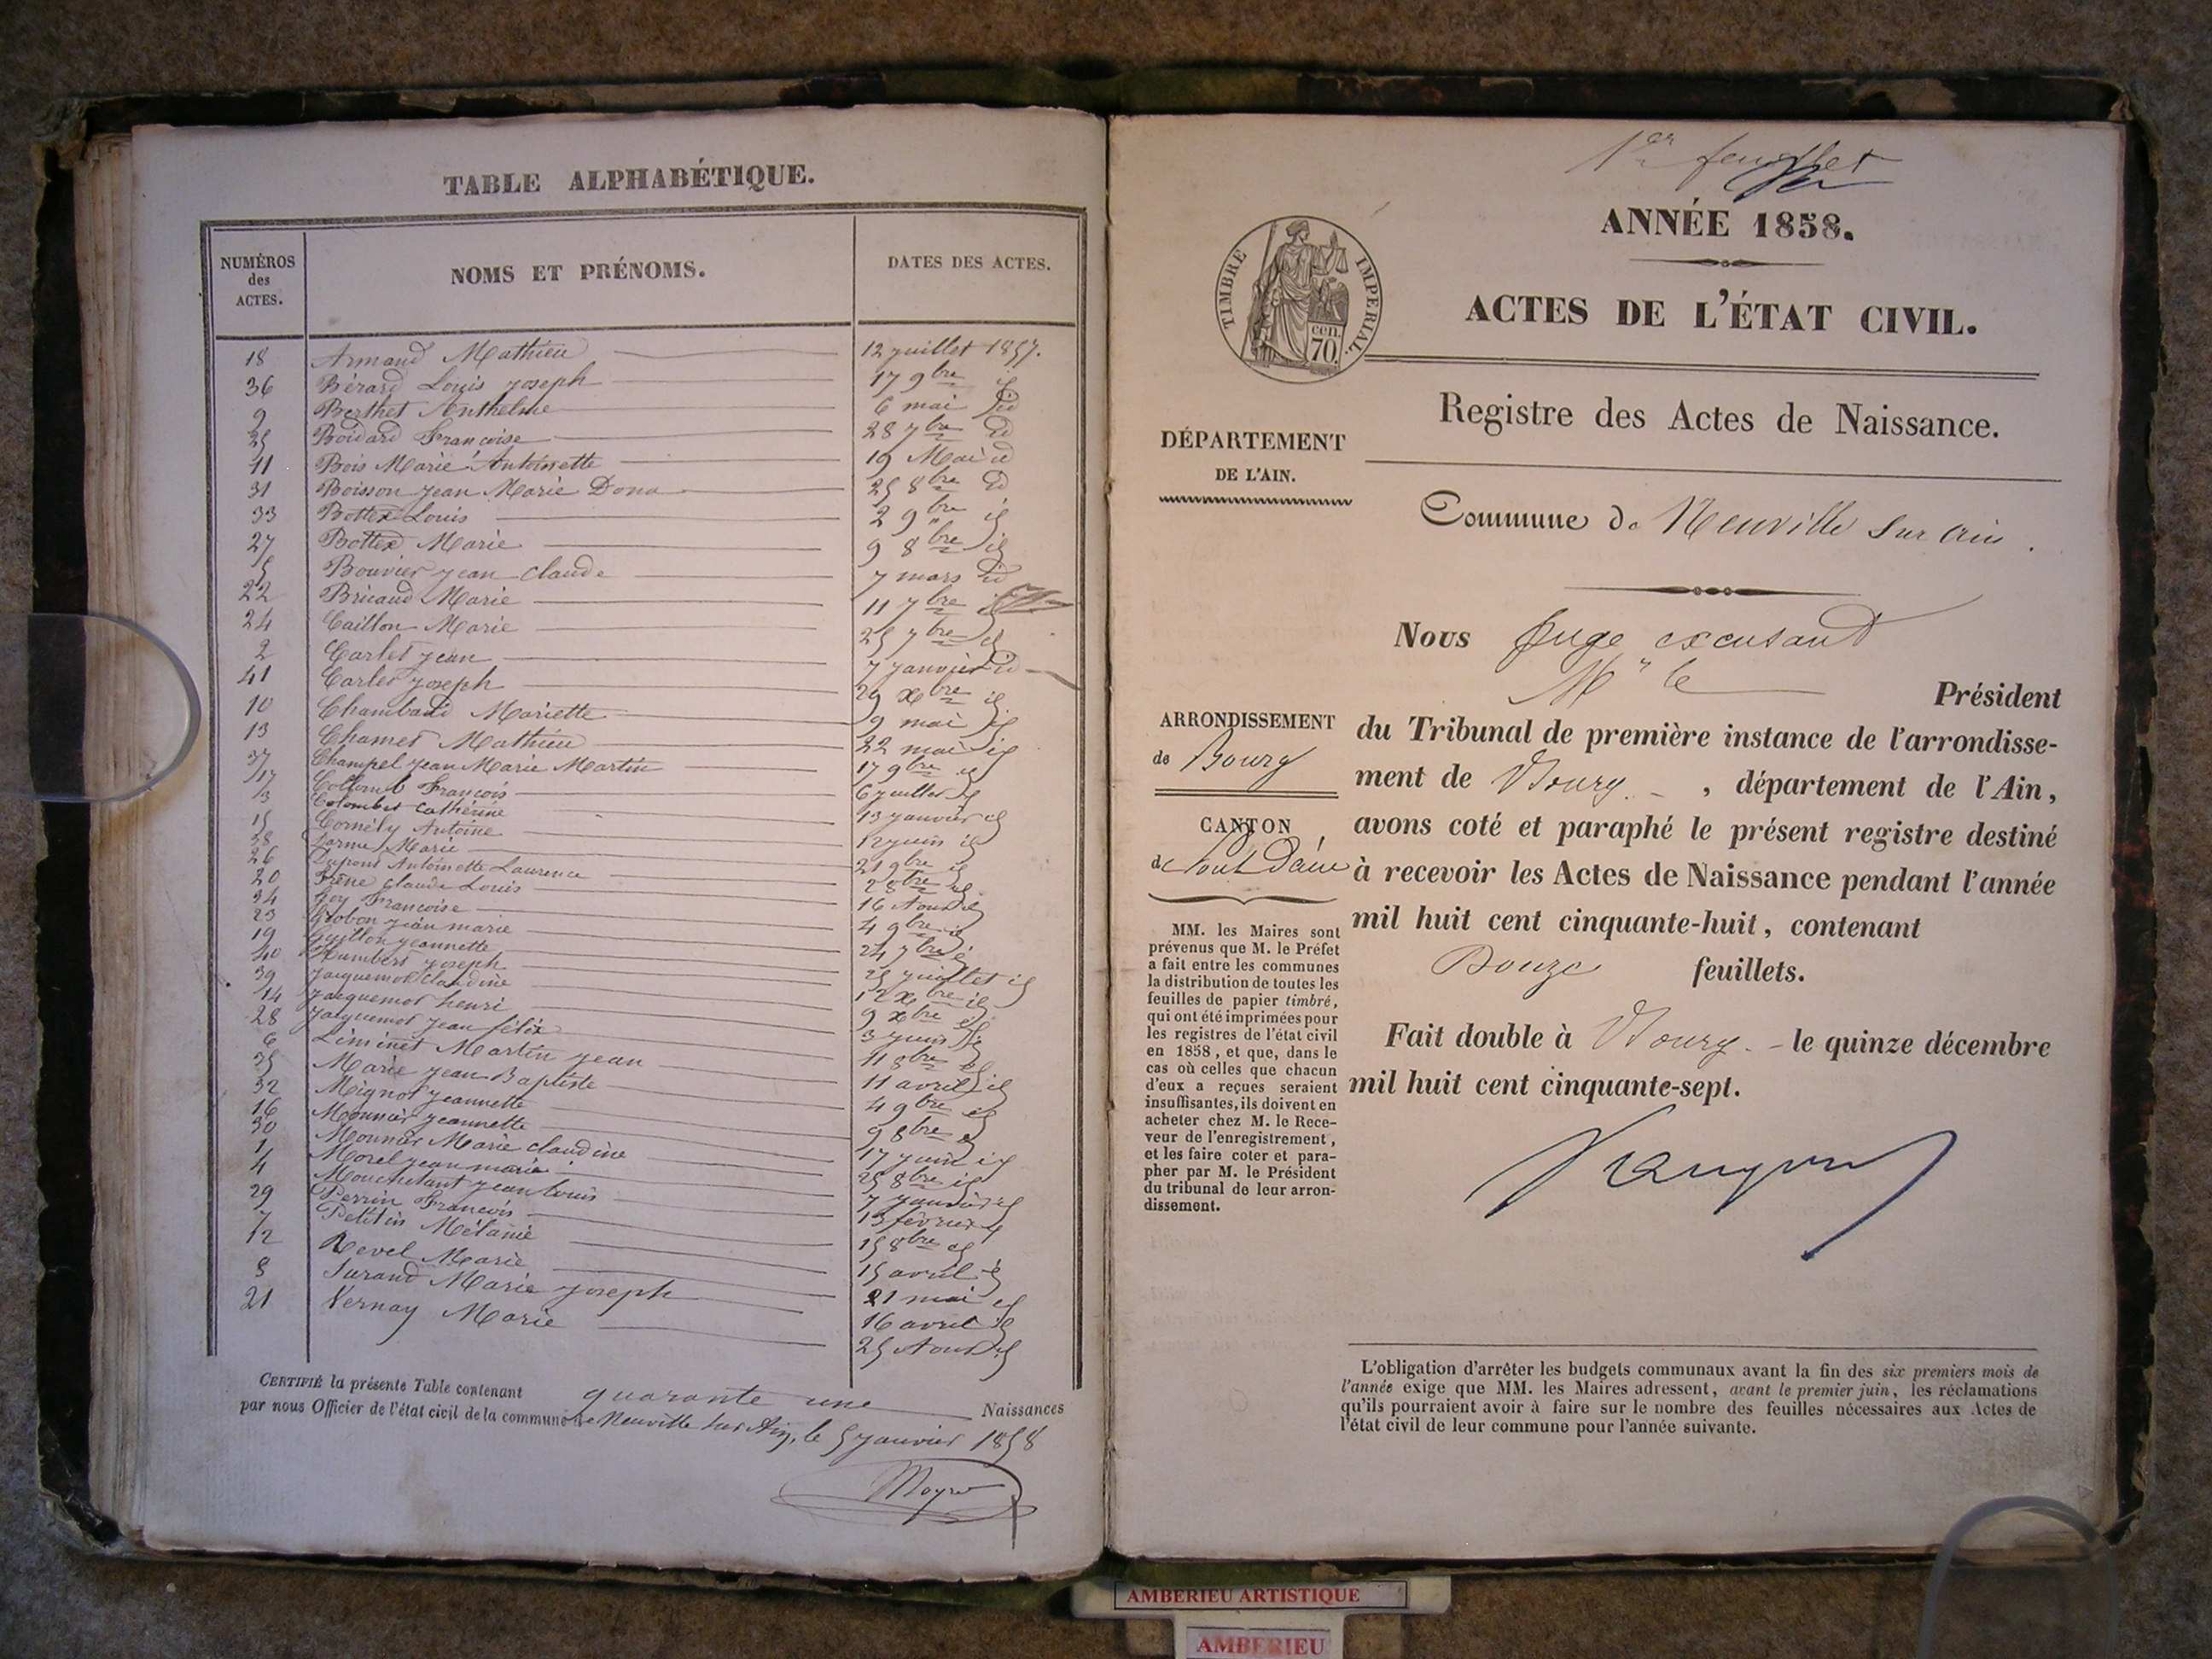 TABLE ALPHABÉTIQUE.
NUMÉROS des ACTES.
NOMS ET PRÉNOMS.
DATES DES ACTES.
18 Armand Mathieu 12 juillet 1857.
36 Bérard Louis joseph 17 9bre id
9 Berthet Anthelme 6 mai id
25 Boidard Françoise 28 7bre id
11 Bois Marie Antoinette 19 Mai id
31 Boisson jean Marie Dona 25 8bre id
33 Bottex Louis 2 9bre id
27 Bottex Marie 9 8bre id
5 Bouvier jean claude 7 mars id
22 Bricaud Marie 11 7bre id
24 Caillon Marie 25 7bre id
2 Carlet jean 7 janvier id
41 Carlet joseph 29 xbre id
10 Chambard Mariette 9 mai id
13 Chamet Mathieu 22 mai id
37 Champel jean Marie Martin 17 9bre id
17 Collomb François 6 juillet id
3 Colombet Cathérine 13 janvier id
15 Cornély Antoine 12 juin id
38 Darme Marie 21 9bre id
26 Dupont Antoinette Laurence 2 8bre id
20 Frêne claude Louis 16 Aout id
34 Goy Françoise 4 9bre id
23 Grobon jean marie 24 7bre id
19 Guillon jeannette 25 juillet id
40 Humbert joseph 12 xbre id
39 Jacquemot Claudine 9 xbre id
14 Jacquemot henri 3 juin id
28 Jacquemot jean félix 11 8bre id
6 Liminet Martin jean 11 avril id
35 Marie jean Baptiste 4 9bre id
32 Mignot jeannette 9 8bre id
16 Mounier jeannette 17 juin id
30 Mounier Marie claudine 25 8bre id
1 Morel jean marie 7 janvier id
4 Mouchetant jean louis 13 février id
29 Perrin François 15 8bre id
7 Petitin Mélanie 15 avril id
12 Revel Marie 21 mai id
8 Surand Marie joseph 16 avril id
21 Vernay Marie 25 Aout id
CERTIFIÉ la présente Table contenant quarante une Naissances
par nous Officier de l'état civil de la commune de Neuville sur Ain, le 5 janvier 1858
1er feuillet
ANNÉE 1858.
TIMBRE IMPERIAL.
cen.
70.
ACTES DE L'ÉTAT CIVIL.
Registre des Actes de Naissance.
DÉPARTEMENT
DE L'AIN.
Commune de Neuville sur ain.
Nous juge excusant
Mr le Président
ARRONDISSEMENT
de Bourg
CANTON
de Pont d'ain
du Tribunal de première instance de l'arrondisse-
ment de Bourg. , département de l'Ain,
avons coté et paraphé le présent registre destiné
à recevoir les Actes de Naissance pendant l'année
mil huit cent cinquante-huit, contenant
Douze feuillets.
Fait double à Bourg. le quinze décembre
mil huit cent cinquante-sept.
MM. les Maires sont
prévenus que M. le Préfet
a fait entre les communes
la distribution de toutes les
feuilles de papier timbré,
qui ont été imprimées pour
les registres de l'état civil
en 1858, et que, dans le
cas où celles que chacun
d'eux a reçues seraient
insuffisantes, ils doivent en
acheter chez M. le Rece-
veur de l'enregistrement,
et les faire coter et para-
pher par M. le Président
du tribunal de leur arron-
dissement.
L'obligation d'arrêter les budgets communaux avant la fin des six premiers mois de
l'année exige que MM. les Maires adressent, avant le premier juin, les réclamations
qu'ils pourraient avoir à faire sur le nombre des feuilles nécessaires aux Actes de
l'état civil de leur commune pour l'année suivante.
AMBERIEU ARTISTIQUE
AMBERIEU